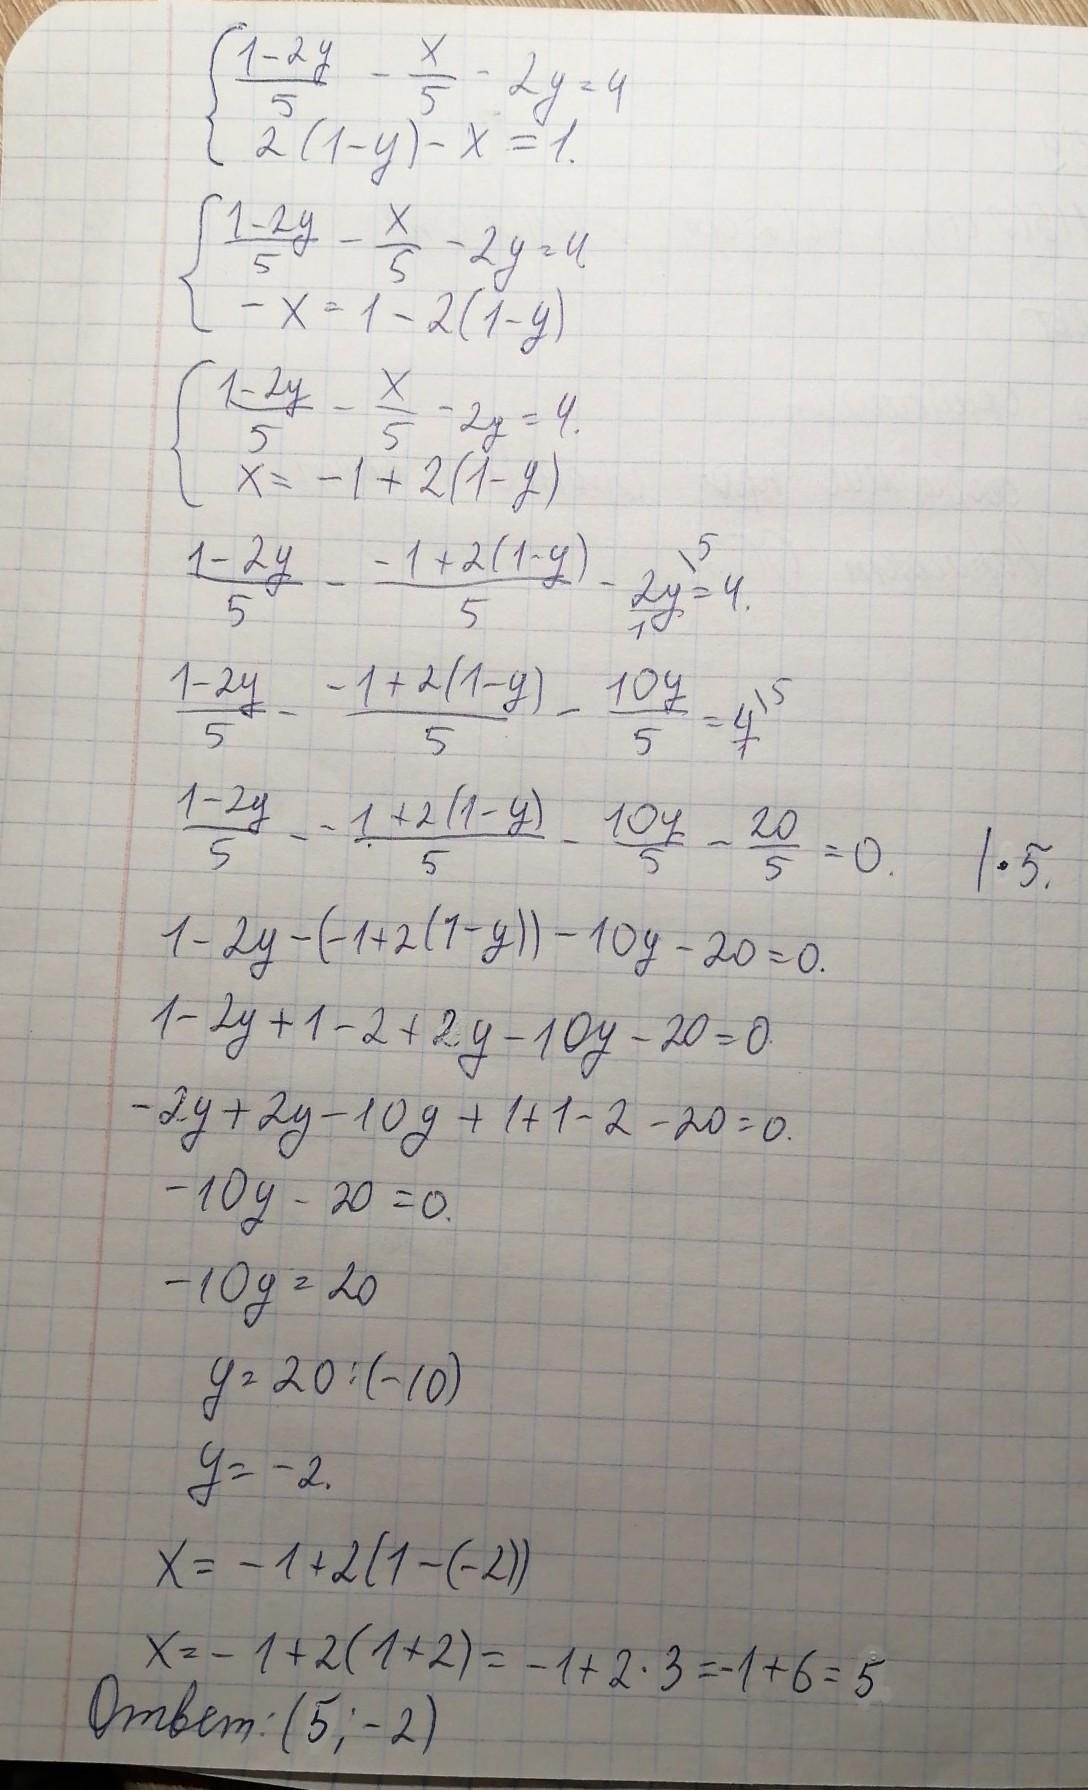 { (1-2y)/5 - x/5 - 2y = 4
2(1-y) - x = 1.
{ (1-2y)/5 - x/5 - 2y = 4
-x = 1 - 2(1-y)
{ (1-2y)/5 - x/5 - 2y = 4.
x = -1 + 2(1-y)
(1-2y)/5 - (-1+2(1-y))/5 - 2y/1 \5 = 4.
(1-2y)/5 - (-1+2(1-y))/5 - 10y/5 = 4/1 \5
(1-2y)/5 - -1+2(1-y)/5 - 10y/5 - 20/5 = 0. |·5.
1-2y-(-1+2(1-y))-10y-20=0.
1-2y+1-2+2y-10y-20=0.
-2y+2y-10y+1+1-2-20=0.
-10y-20=0.
-10y=20
y=20:(-10)
y=-2.
x=-1+2(1-(-2))
x=-1+2(1+2)=-1+2·3=-1+6=5
Ответ: (5;-2)